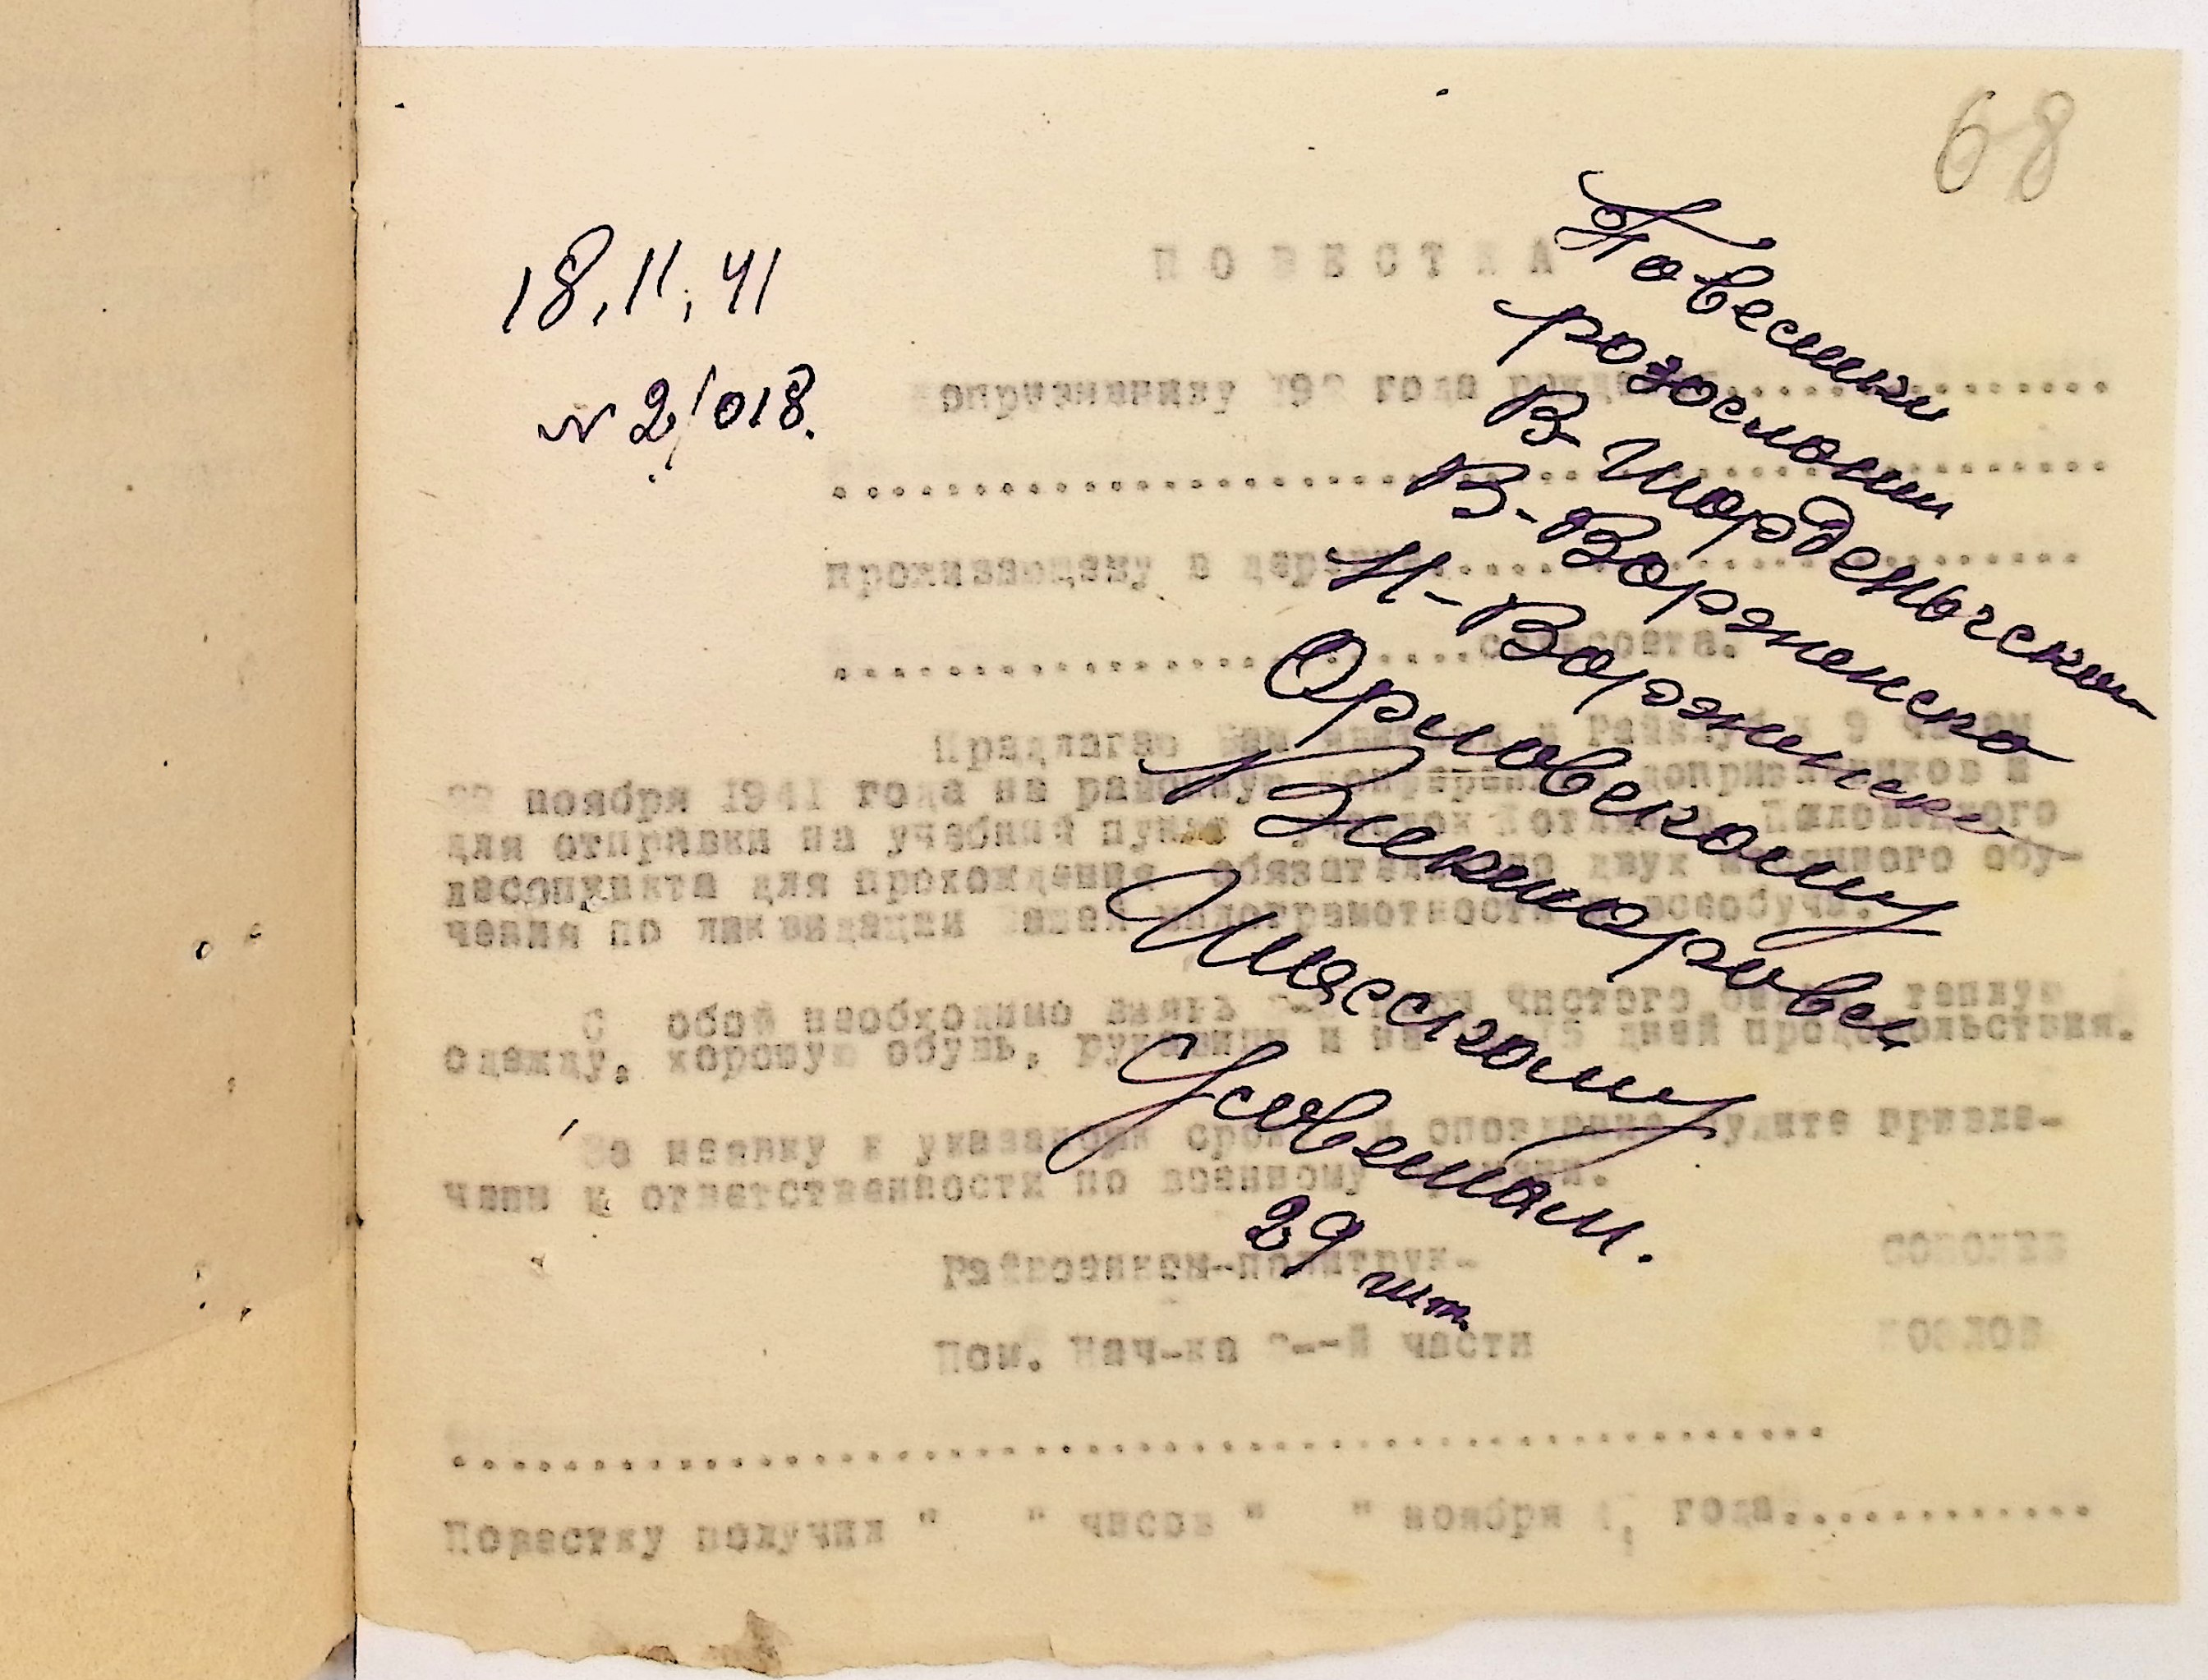 68
18.11.41
№ 2/018.
ПОВЕСТКА
допризывнику 192 года рожде...............
...........................................
проживающему в деревне......................
......................сельсовета.
Предлагаю Вам явиться в Райклуб к 9 часам
ноября 1941 года на районную конференцию допризывников и
для отправки на учебный пункт
лесопункта для прохождения обязательного двух месячного обу-
чения по ликвидации Вашей малограмотности и всеобуча.
С собой необходимо взять чистого белья, теплую
одежду, хорошую обувь, рукавицы и на 15 дней продовольствия.
За неявку к указанному сроку и опоздание будите привле-
чены к ответственности по военному времени.
Райвоенком-политрук- СОКОЛОВ
Пом. Нач-ка 2--й части
...............................................
Повестку получил " " часов " " ноября 41 года.............
Повестки
розосланы
В-Шорденьгском
В-Ворженско
Н-Ворженском
Орловскому
Нестеровск
Шасскому
Советам.
29 шт.